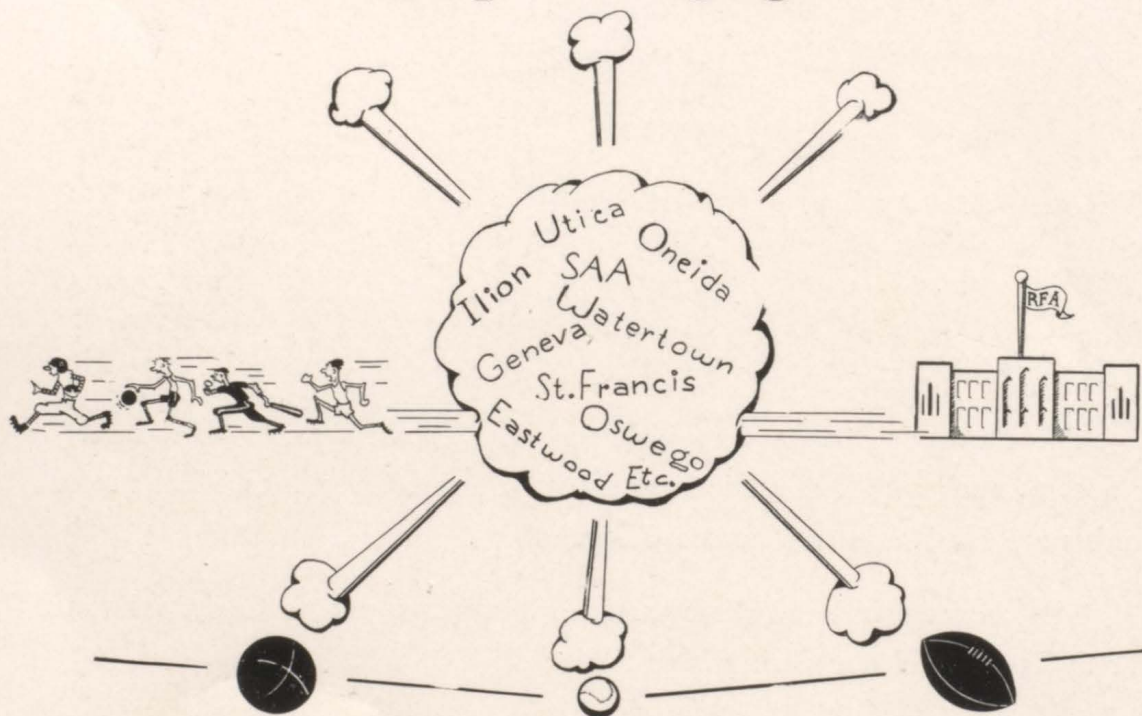 Utica
Oneida
Ilion
SAA
Watertown
Geneva
St. Francis
Oswego
Eastwood Etc.
RFA